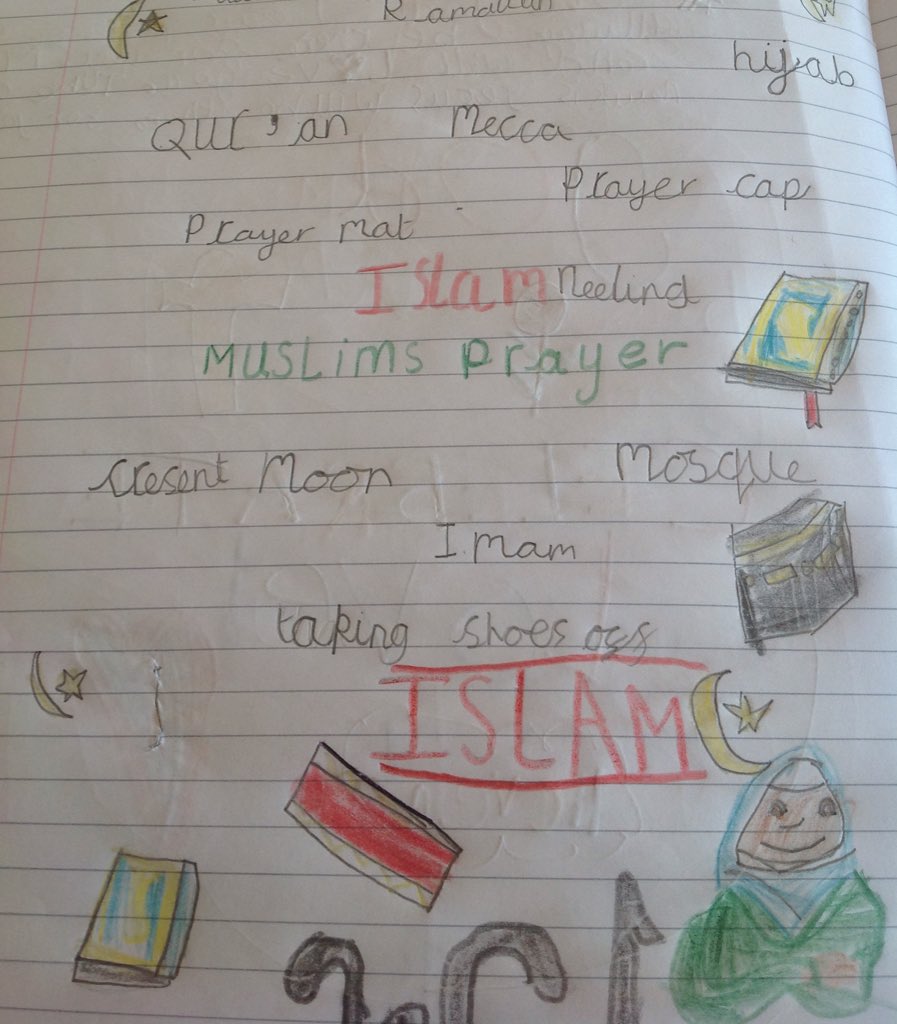 Ramadan
hijab
Qur'an Mecca
Prayer cap
Prayer mat
Islam neeling
Muslims prayer
Cresent Moon Mosque
Imam
taking shoes off
ISLAM